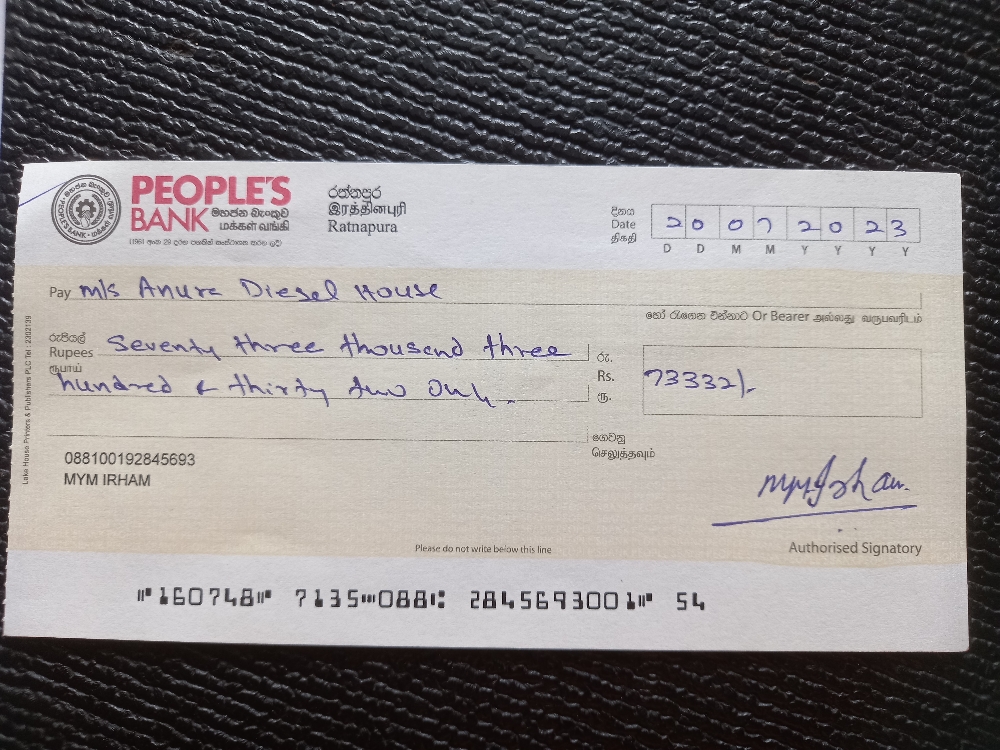 PEOPLE'S
BANK මහජන බැංකුව
மக்கள் வங்கி
රත්නපුර
இரத்தினபுரி
Ratnapura
දිනය
Date
திகதி
20 07 2023
D D M M Y Y Y Y
Pay M/s Anura Diesel House
හෝ රැගෙන එන්නාට Or Bearer அல்லது வருபவரிடம்
රුපියල්
Rupees
ரூபாய்
Seventy three thousand three
hundred & thirty two Only.
රු.
Rs.
ரூ.
73332/-
ගෙවනු
செலுத்தவும்
088100192845693
MYM IRHAM
Lake House Printers & Publishers PLC Tel : 2302139
Please do not write below this line
Authorised Signatory
⑈160748⑈ 7135⑉088⑆ 2845693001⑈ 54